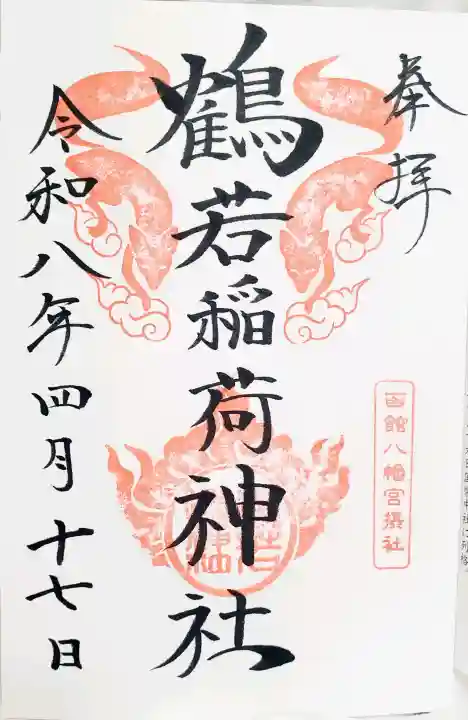 奉拝
函館八幡宮摂社
鶴若稲荷神社
令和八年四月十七日